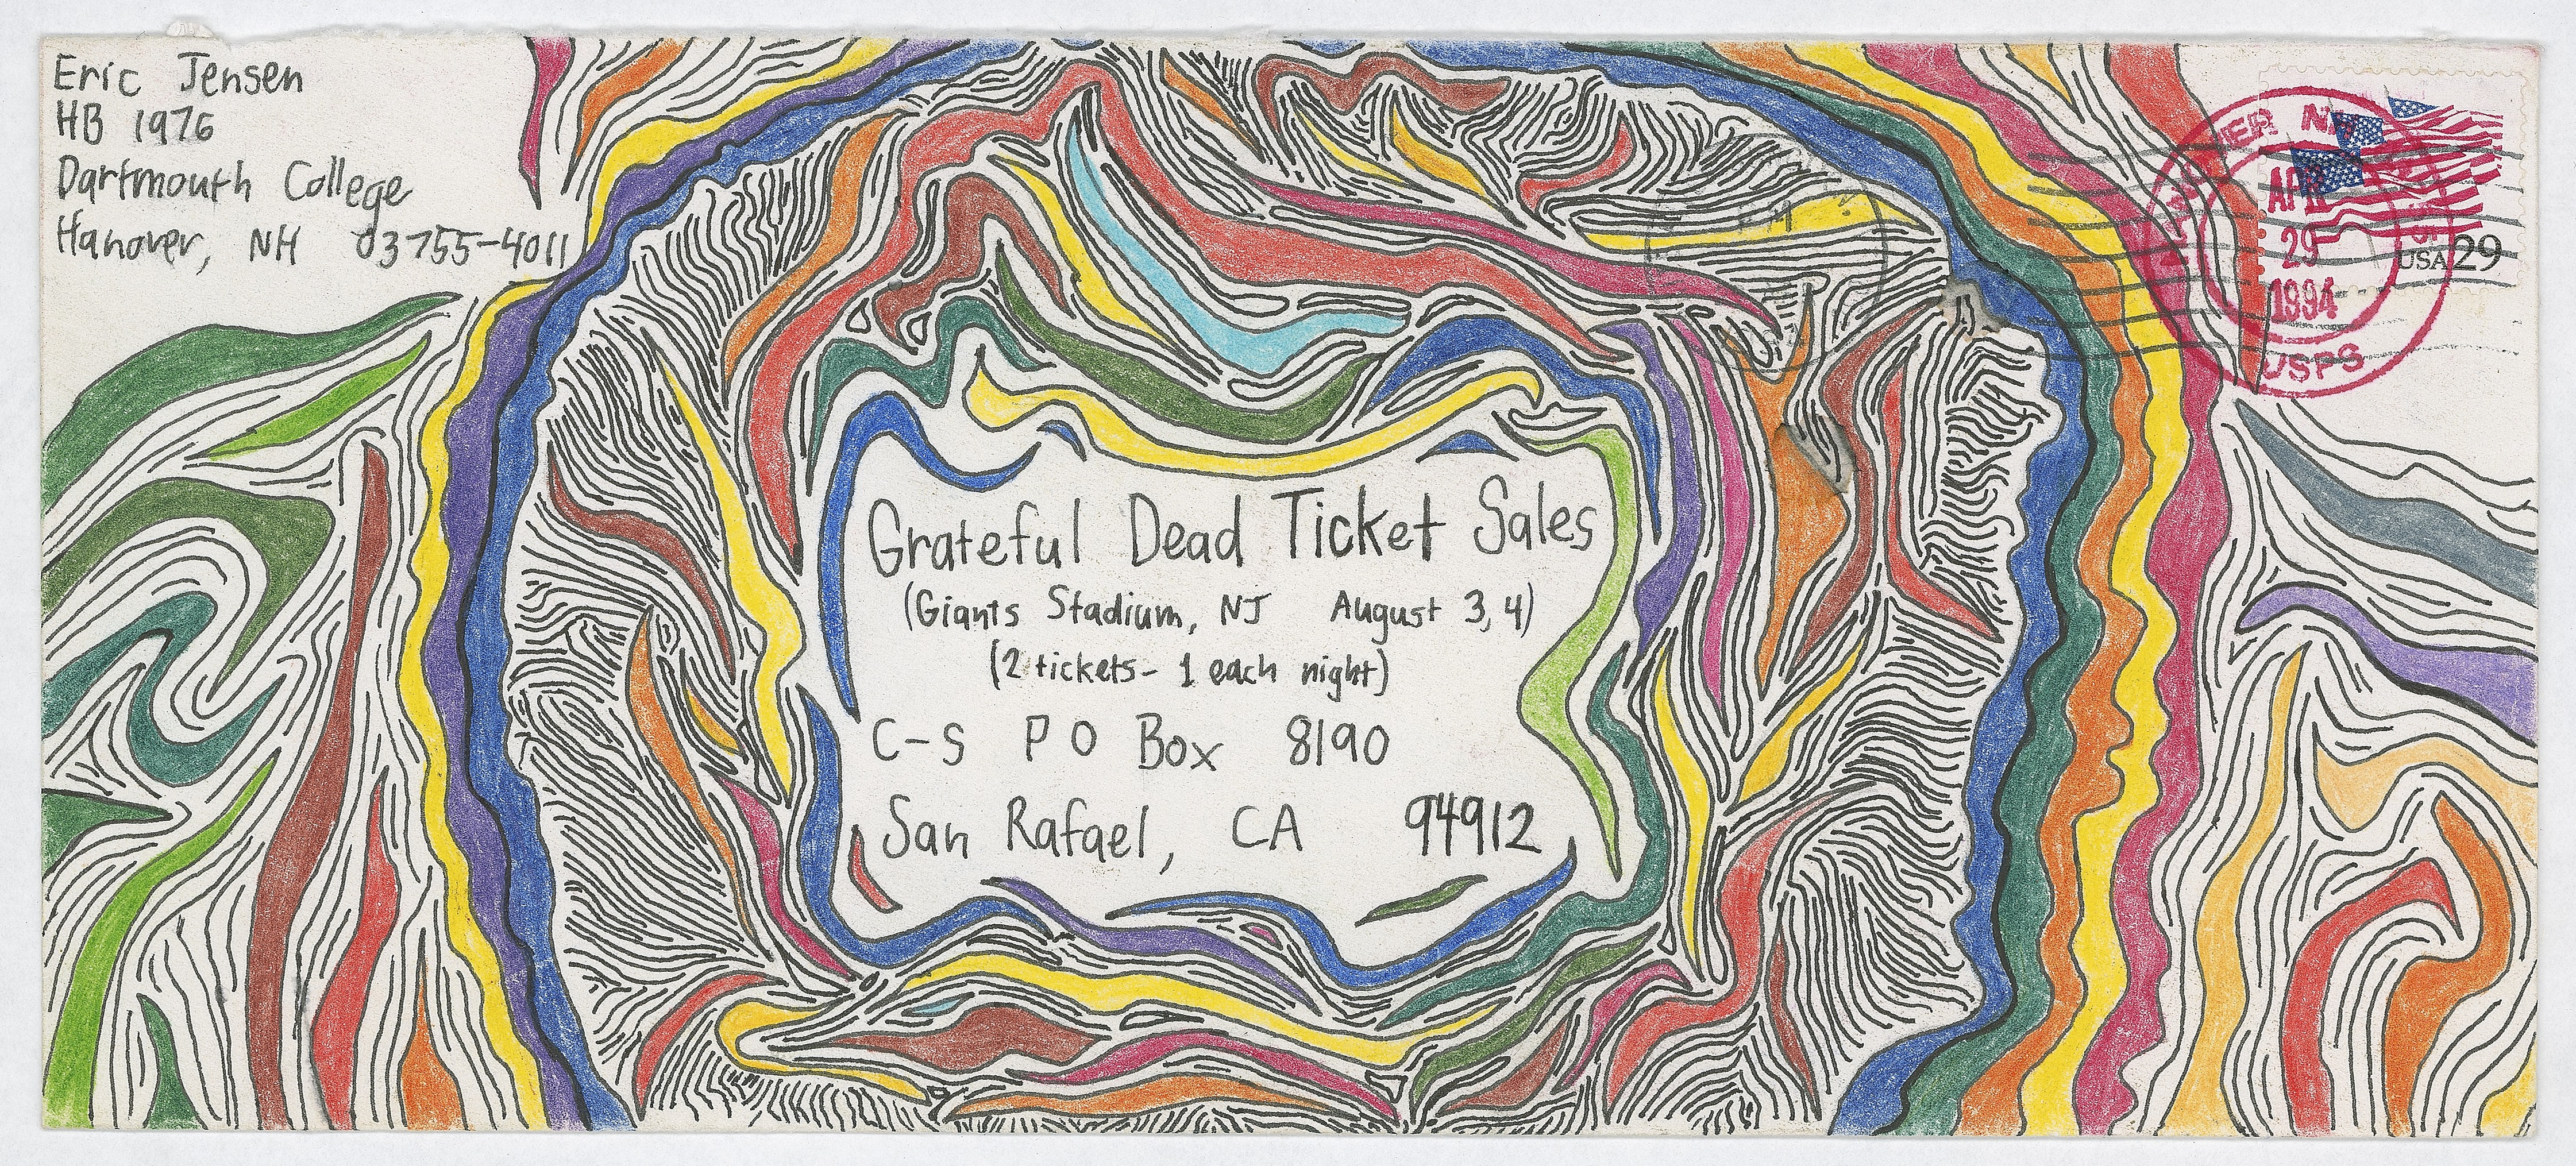 Eric Jensen
HB 1976
Dartmouth College
Hanover, NH 03755-4011
NH
APR
29
1994
USPS
USA 29
Grateful Dead Ticket Sales
(Giants Stadium, NJ August 3, 4)
(2 tickets- 1 each night)
C-S P O Box 8190
San Rafael, CA 94912